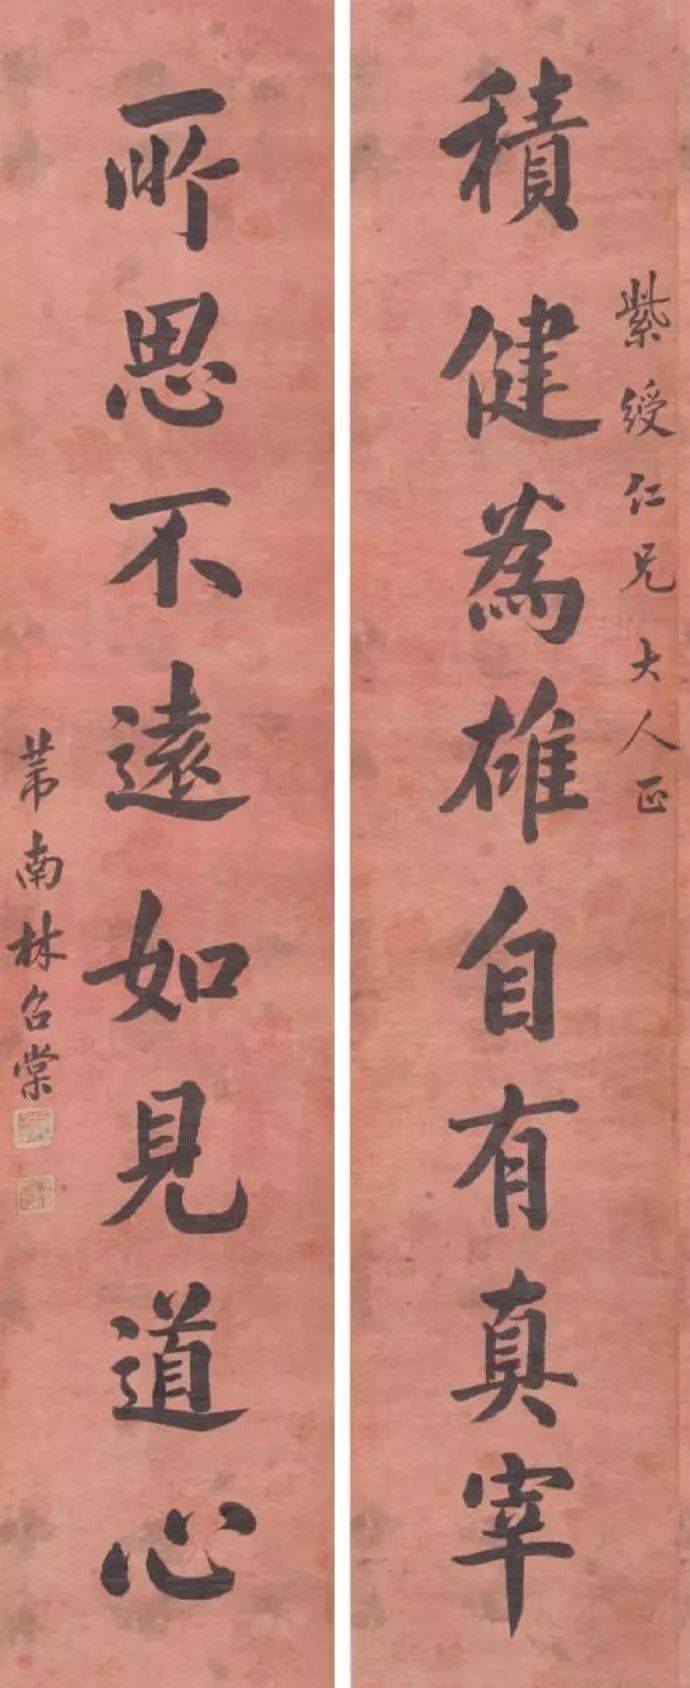 紫綬仁兄大人正
積健為雄自有真宰
所思不遠如見道心
芾南林召棠